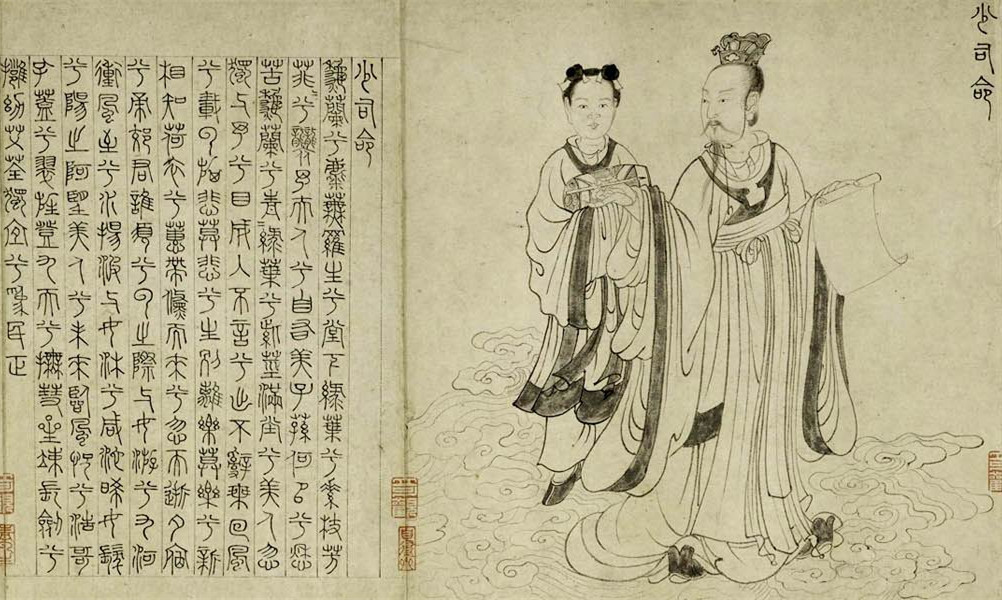 少司命
少司命
龝蘭兮麋蕪羅生兮堂下綠葉兮素枝芳
菲兮襲予夫人兮自有美子蓀何以兮愁
苦龝蘭兮青綠葉兮紫莖滿堂兮美人忽
獨与予兮目成入不言兮出不辭乘回風
兮載云旗悲莫悲兮生別離樂莫樂兮新
相知荷衣兮蕙帶儵而來兮忽而逝夕宿
兮帝郊君誰須兮云之際与女游兮九河
衝風至兮水揚波与女沐兮咸池晞女髮
兮陽之阿望美人兮未來臨風怳兮浩哥
孔蓋兮翠旌登九天兮撫彗星竦長劍兮
擁幼艾荃獨宜兮為民正